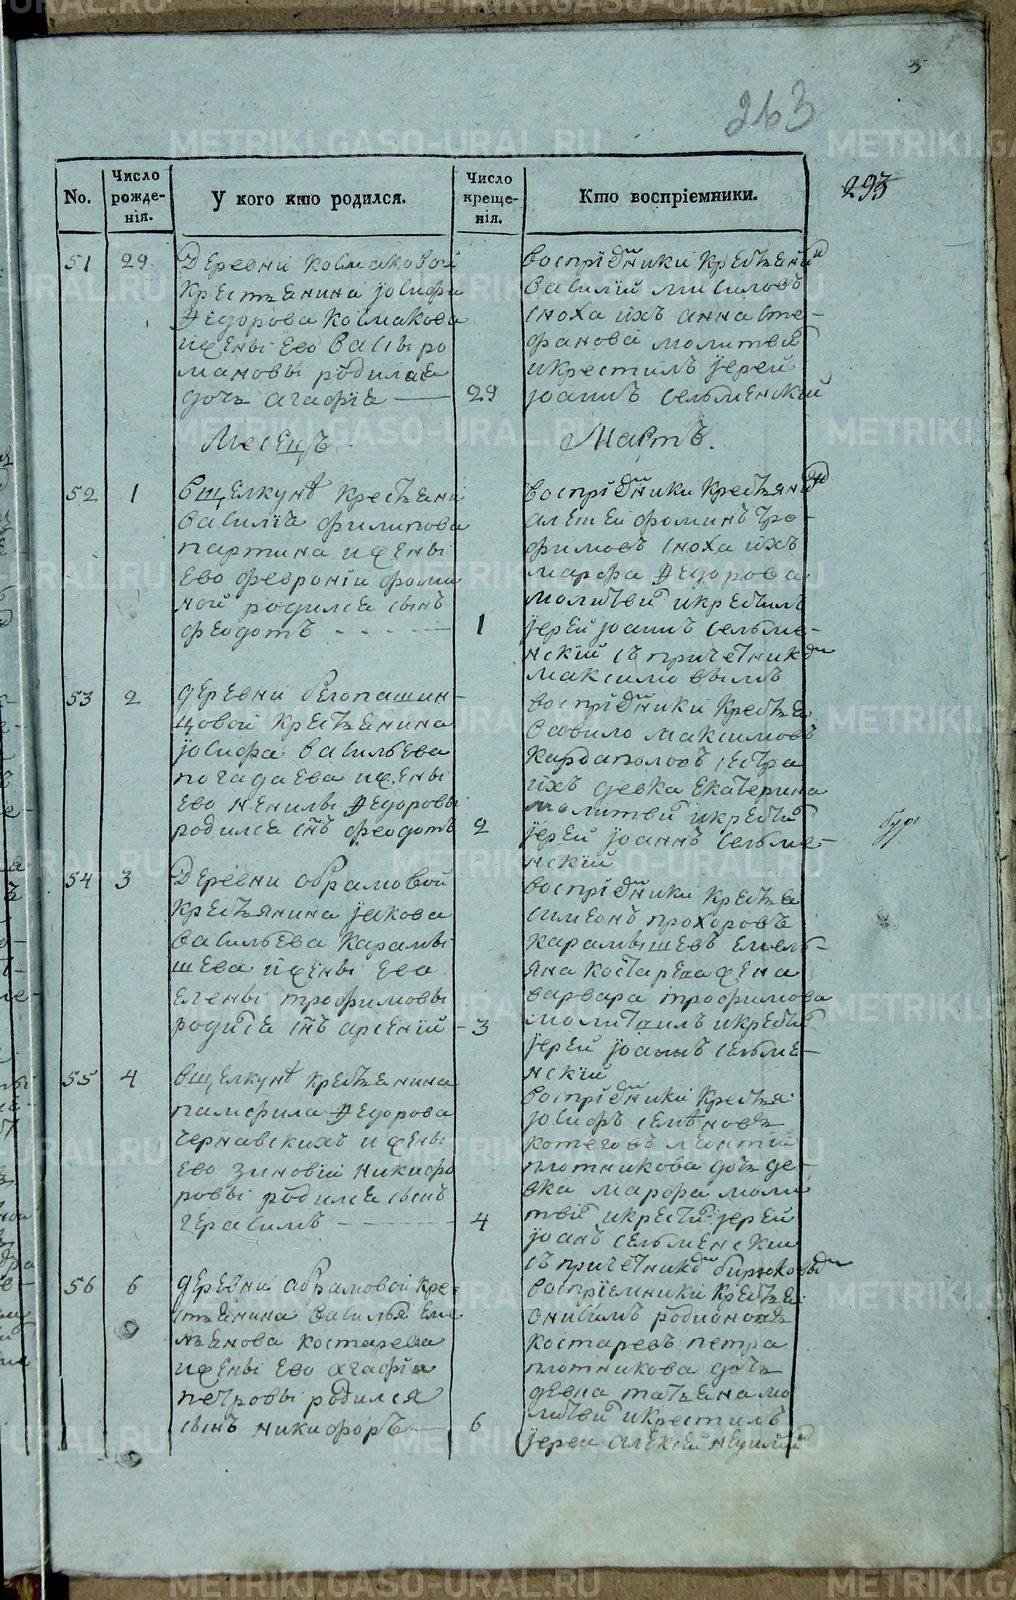 263
293
No.
Число рожде-нія.
У кого кто родился.
Число креще-нія.
Кто воспріемники.
51 29
Деревни космаковой
крестьянина іосифа
Федорова космакова
ижены ево васы ро
мановы родилас
дочь агафїа — 29
воспрїемники крестьяни
василїй
сноха ихъ анна сте-
фанова молитвой
икрестилъ їерей
їоаннъ сельменскїй
Месецъ Мартъ.
52 1
вщелкунѣ крестьяни
василїа филипова
партина ижены
ево февронїи фоми
ной родился сынъ
феодотъ - - - - 1
воспрїемники крестьяни
алексеи фоминъ тро-
фимовъ сноха ихъ
марфа Федорова
молитвой икрестилъ
їерей їоаннъ сельме-
нскїй съ причетником
максимовымъ
53 2
деревни белопашин-
цовой крестьянина
їосифа васильева
погадаева ижены
ево ненилы Федоровы
родился снъ феодотъ 2
воспрїемники крестья
вавило максимовъ
кардаполовъ сестра
ихъ девка екатерина
молитвой икрестил
їерей їоаннъ сельме-
нскїй
54 3
Деревни абрамовой
крестьянина їякова
васильева карамы
шева ижены ево
елены трофимовы
родился снъ арсенїй - 3
воспрїемники крестья
симеонъ прохоровъ
карамышевъ емель-
яна костарева жена
варвара трофимова
молитвилъ икрестил
їерей їоаннъ сельме-
нскїй
55 4
вщелкунѣ крестьянина
памфила Федорова
чернавскихъ ижены
ево зиновїи никифо
ровы родился сынъ
герасимъ - - - 4
воспрїемники крестья
їосифъ семѣновъ
котеговъ леонтїя
плотникова дочь де-
вка марфа моли
твой икрестил їерей
їоанъ сельменскии
съ причетником бирюковым
56 6
деревни абрамовой кре-
стьянина василья еме
льянова костарева
ижены ево агафїи
петровы родился
сынъ никифоръ — 6
воспрїемники крестья
онисимъ родионовъ
костаревъ петра
плотникова дочь
девка татьяна мо
литвой икрестилъ
їереи алексїй